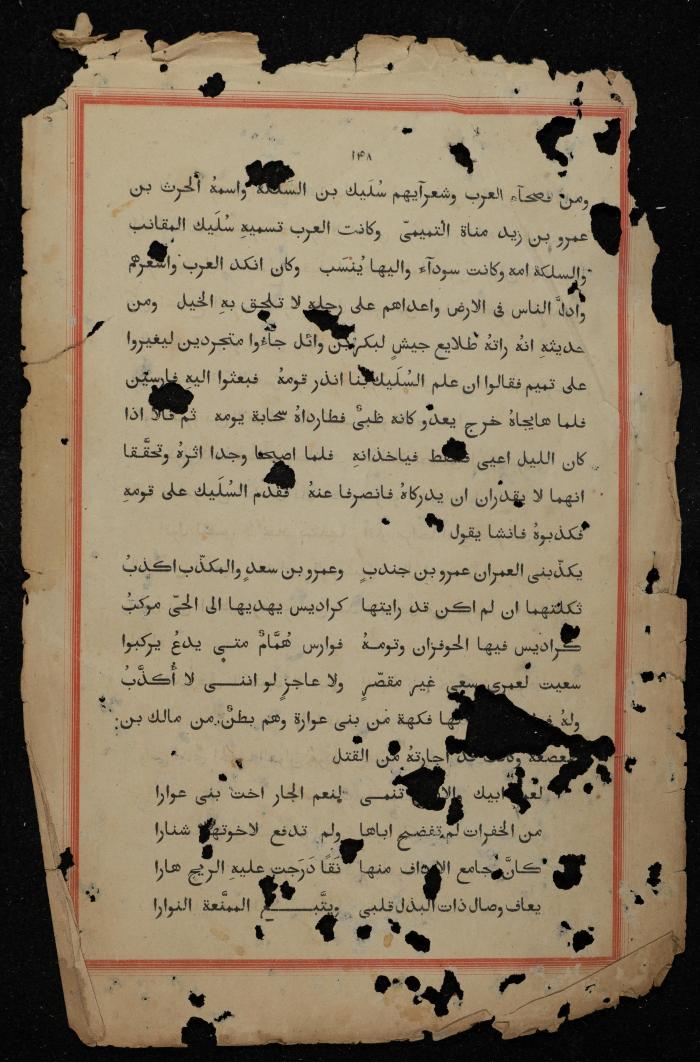 ١٤٨
ومن فصحآء العرب وشعرآيهم سُلَيك بن السلكة واسمهُ الحرث بن
عمرو بن زيد مناة التميمىّ وكانت العرب تسميهِ سُلَيك المقانب
والسلكة امه وكانت سودآء واليها يُنسَب وكان انكد العرب واشعرهم
وادلَّ الناس فى الارض واعداهم على رجلهِ لا تلحق بهِ الخيل ومن
حديثهِ انهُ راتهُ طلايع جيشٍ لبكر بن وائل جآءوا متجردين ليغيروا
على تميم فقالوا ان علم السُلَيك بنا انذر قومهُ فبعثوا اليهِ فارسَين
فلما هايجاهُ خرج يعدو كانه ظبىٌ فطارداهُ سحابة يومه ثم قالا اذا
كان الليل اعيى فسقط فياخذانهِ فلما اصبحا وجدا اثرهُ وتحقَّقا
انهما لا يقدران ان يدركاهُ فانصرفا عنهُ فقدم السُلَيك على قومهِ
فكذبوهُ فانشا يقول
يكذّبنى العمران عمرو بن جندبٍ وعمرو بن سعدٍ والمكذّب اكذبُ
ثكلتهما ان لم اكن قد رايتها كراديس يهديها الى الحىّ موكبُ
كراديس فيها الحوفزان وتومهُ فوارس هُمَّامٌ متى يدعُ يركبوا
سعيت لعمرى سعى غير مقصّرٍ ولا عاجزٍ لو اننى لا أُكذَّبُ
ولهُ فكهة من بنى عوارة وهم بطنٌ من مالك بن
صعصعة قد اجارتهُ من القتل
لعمر ابيك تنمى لنعم الجار اخت بنى عوارا
من الخفرات لم تفضح اباها ولم تدفع لاخوتها شنارا
كانَّ مجامع الارداف منها نَقًا دَرَجت عليهِ الريح هارا
يعاف وصال ذات البذل قلبى ويتَّبع الممنَّعة النوارا